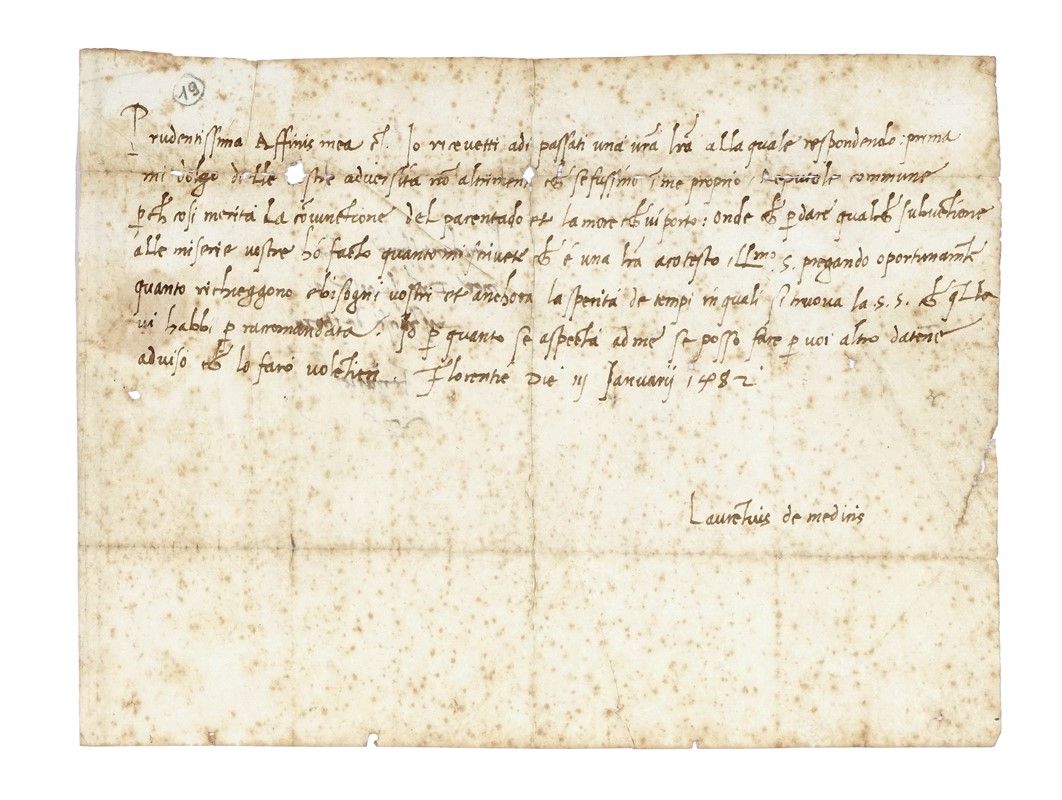 19
Prudentissima Affinis mea etc. Io ricevetti adi passati una vra lra alla quale respondendo: prima
mi dolgo delle vostre adversita nō altrimenti che se fussino ī me proprio, commune
p che cosi merita La cōiunctione del parentado et lamore che vi porto: onde che p dare qualche subvētione
alle miserie vostre hó facto quanto mi scrivete che è una lrā a cotesto Illmo. S. pregando oportunamte
quanto richieggono e bisogni vostri et anchora lasperità de tempi in quali si truova la S. S. che
vi habbi p racomandata. Io p quanto se aspecta ad me se posso fare p voi altro datene
adviso che lo farò volētieri Florentie Die iij Ianuarij 1482
Laurētius de medicis